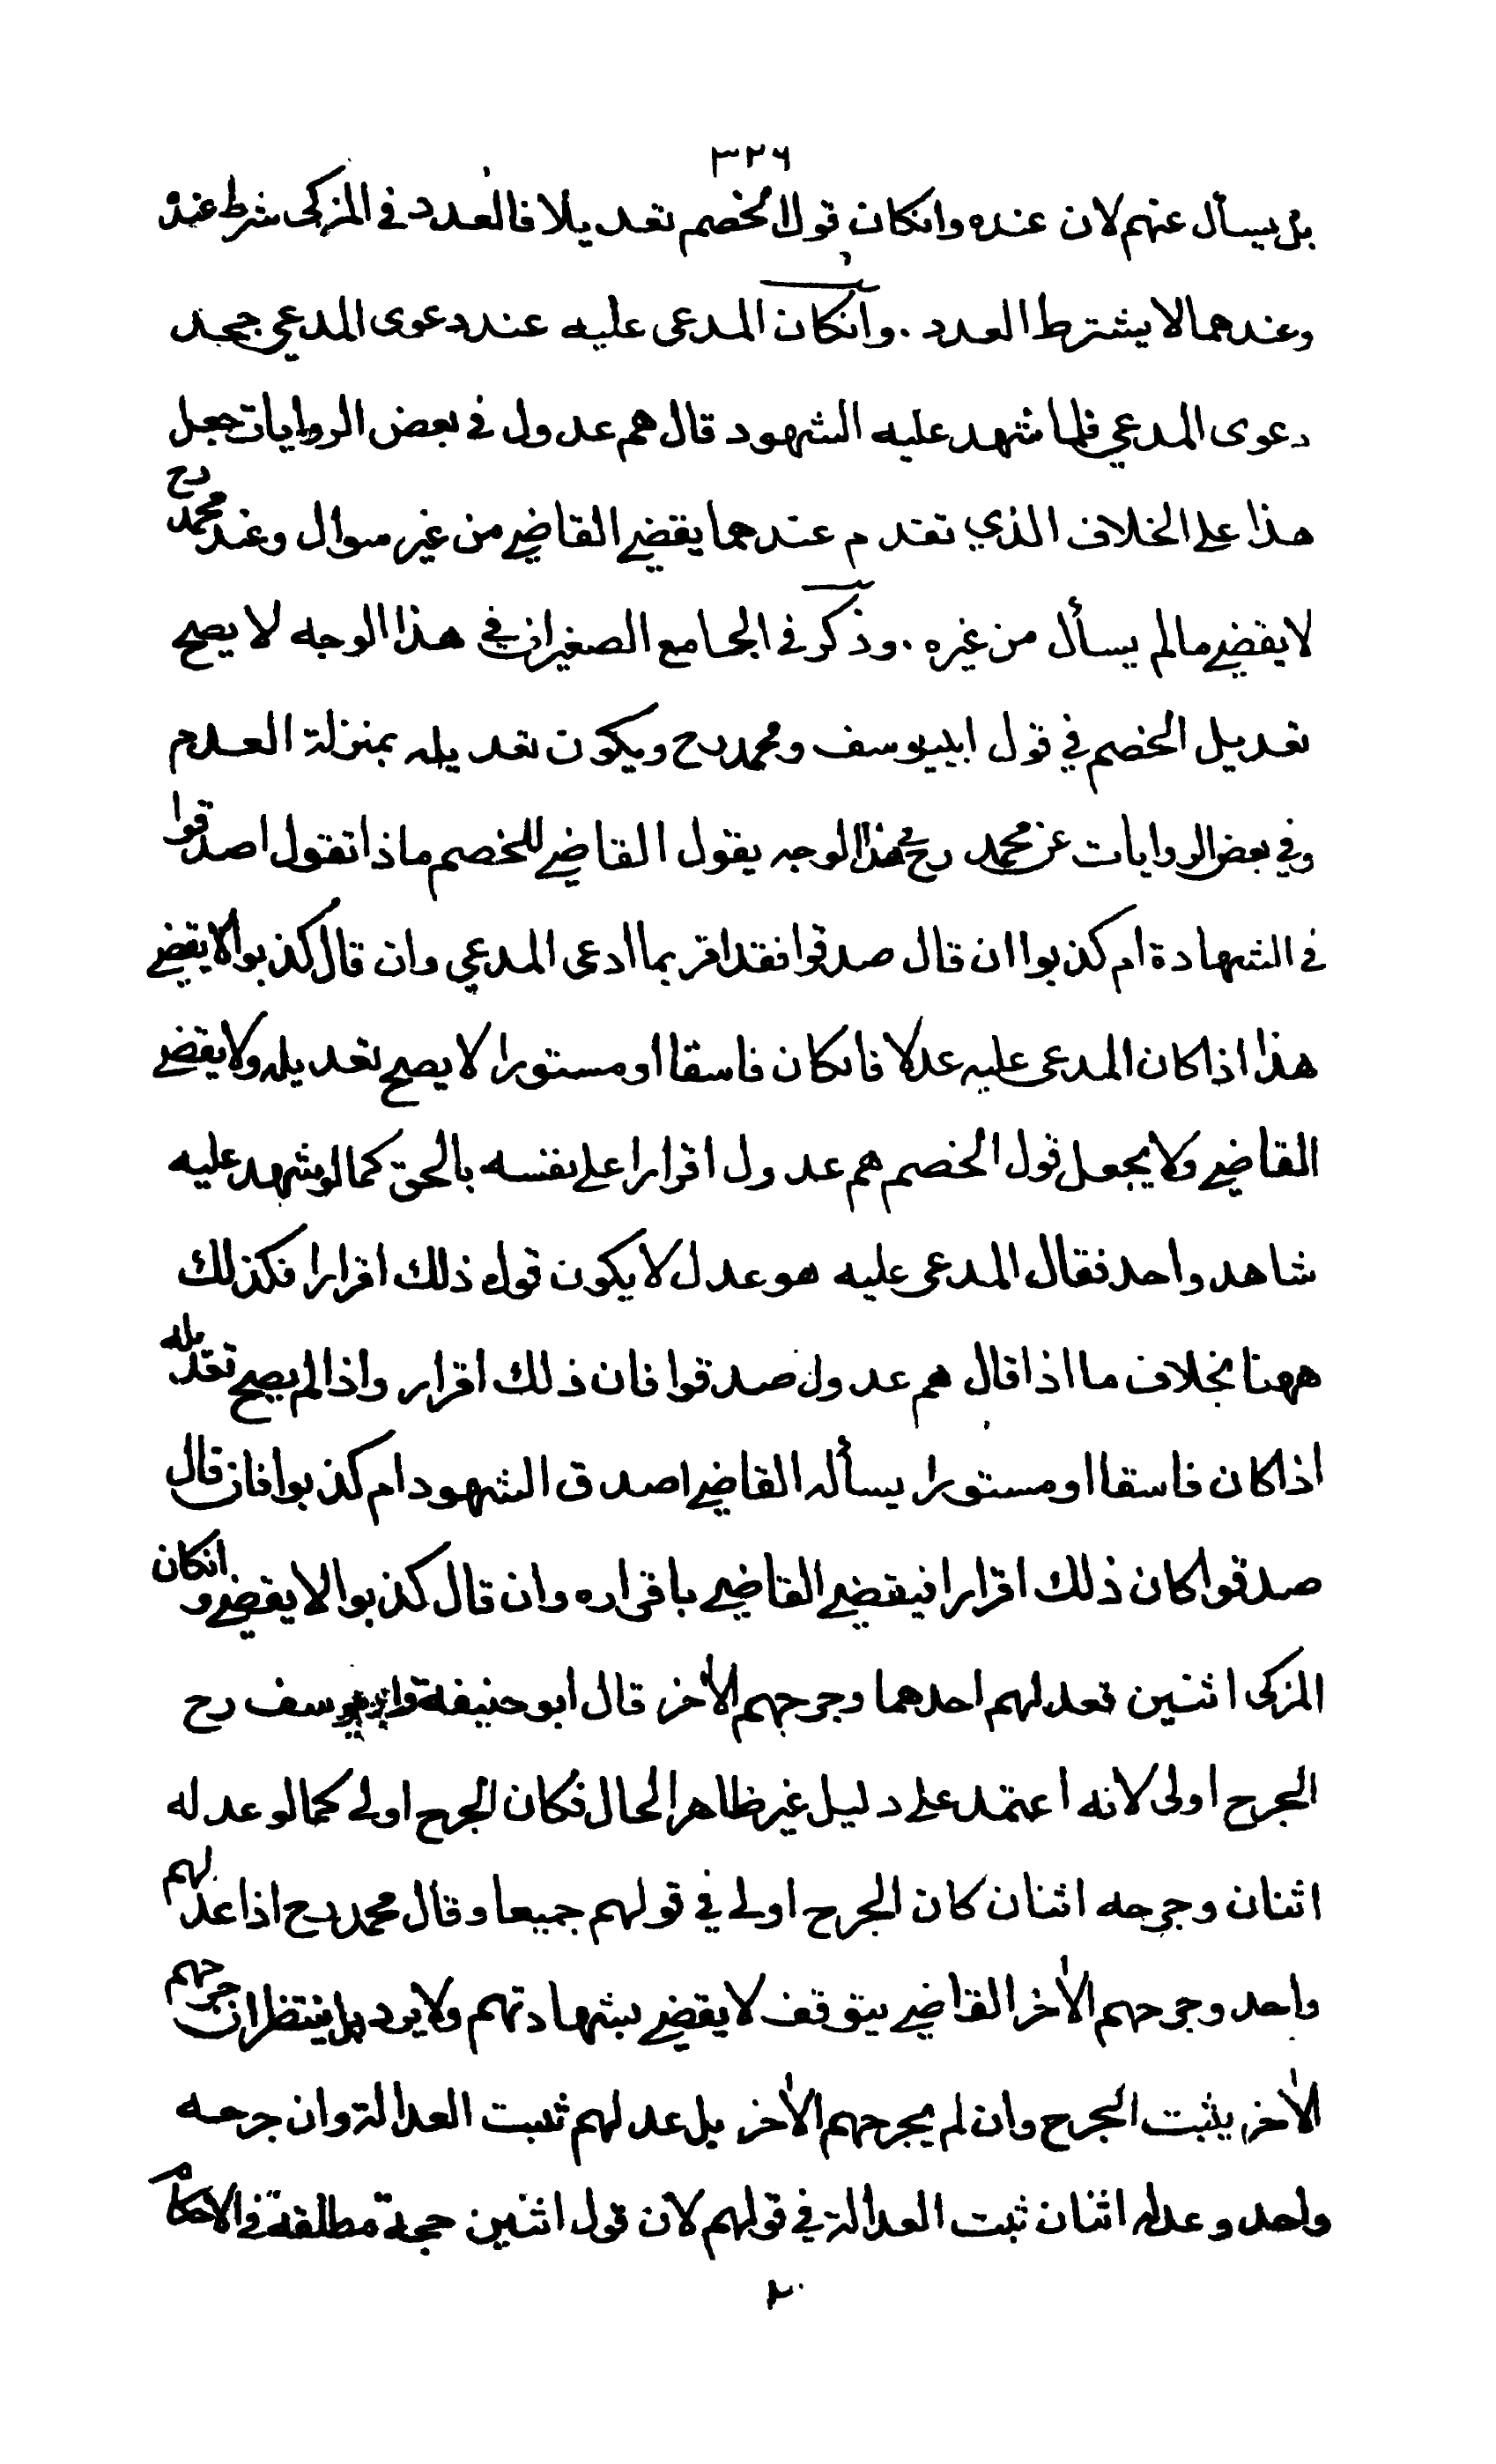 ٣٢٦
بل يسأل عنهم لان عنده وانكان قول الخصم تعديلا فالعدد في المزكى شرط عنده
وعندهما لا يشترط العدد . وانكان المدعى عليه عند دعوى المدعي جحد
دعوى المدعي فلما شهد عليه الشهود قال هم عدول في بعض الروايات جعل
هذا على الخلاف الذي تقدم عندهما يقضي القاضي من غير سوال وعند محمد رح
لا يقضي مالم يسأل من غيره . وذكر في الجامع الصغير ان في هذا الوجه لا يصح
تعديل الخصم في قول ابييوسف ومحمد رح ويكون تعديله بمنزلة العدم
وفي بعض الروايات عن محمد رح في هذا الوجه يقول القاضي للخصم ماذا تقول اصدقوا
في الشهادة ام كذبوا ان قال صدقوا فقد اقر بما ادعى المدعي وان قال كذبوا لا يقضي
هذا اذا كان المدعى عليه عدلا فانكان فاسقا او مستورا لا يصح تعديله ولا يقضي
القاضي ولا يجعل قول الخصم هم عدول اقرارا على نفسه بالحق كما لو شهد عليه
شاهد واحد فقال المدعى عليه هو عدل لا يكون قوله ذلك اقرارا فكذلك
ههنا بخلاف ما اذا قال هم عدول صدقوا فان ذلك اقرار واذا لم يصح تعديله
اذا كان فاسقا او مستورا يسأله القاضي اصدق الشهود ام كذبوا فان قال
صدقوا كان ذلك اقرارا فيقضي القاضي باقراره وان قال كذبوا لا يقضي وانكان
المزكى اثنين فعدلهم احدهما وجرحهم الآخر قال ابو حنيفة وابو يوسف رح
الجرح اولى لانه اعتمد على دليل غير ظاهر الحال فكان الجرح اولى كما لو عدله
اثنان وجرحه اثنان كان الجرح اولى في قولهم جميعا وقال محمد رح اذا عدلهم
واحد وجرحهم الآخر القاضي يتوقف لا يقضي بشهادتهم ولا يرد بل ينتظر ان جرحهم
الآخر يثبت الجرح وان لم يجرحهم الآخر بل عدلهم ثبت العدالة وان جرحه
واحد وعدله اثنان ثبت العدالة في قولهم لان قول اثنين حجة مطلقة في الاحكام